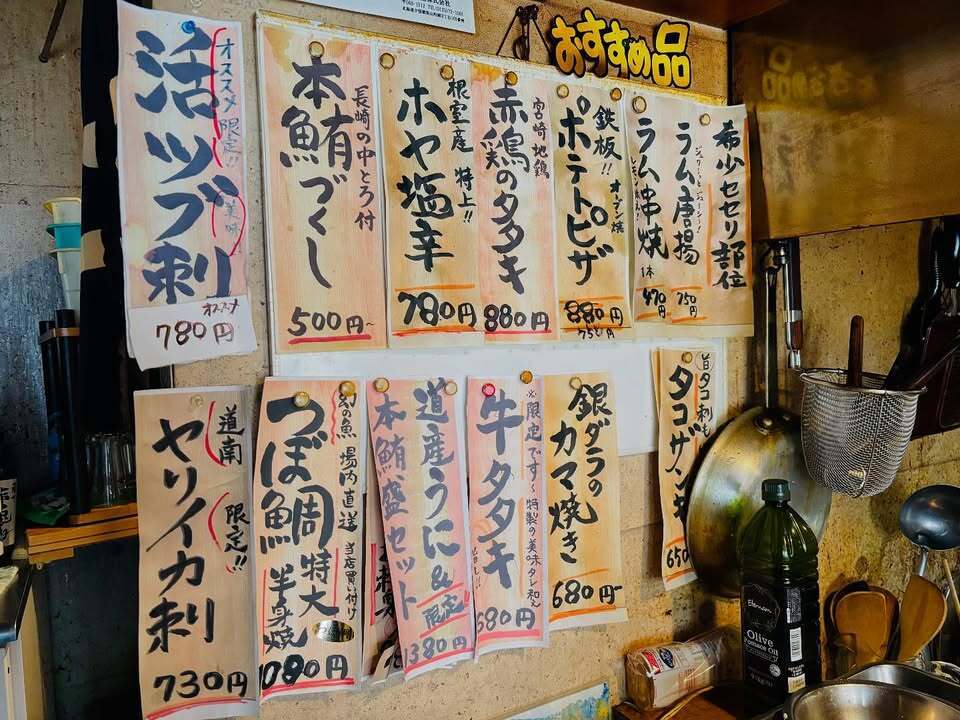 おすすめ品
オススメ限定!!
美味
活ツブ刺
オススメ
780円
長崎の中とろ付
本鮪づくし
500円~
根室産 特上!!
ホヤ塩辛
780円
宮崎地鶏
赤鶏のタタキ
880円
鉄板!!
オーブン焼
ポテトピザ
880円
750円
ラム串焼
1本
470円
ラム唐揚
750円
希少セセリ部位
道南
限定!!
ヤリイカ刺
730円
幻の魚 場内直送
当店買い付け
つぼ鯛特大
半身焼
1080円
道産うに&
本鮪盛セット
限定
1380円
※限定です 特製の美味タレ和え
牛タタキ
680円
銀ダラの
カマ焼き
680円
旨タコ刺も
タコザンギ
650
Olive
Pomace Oil